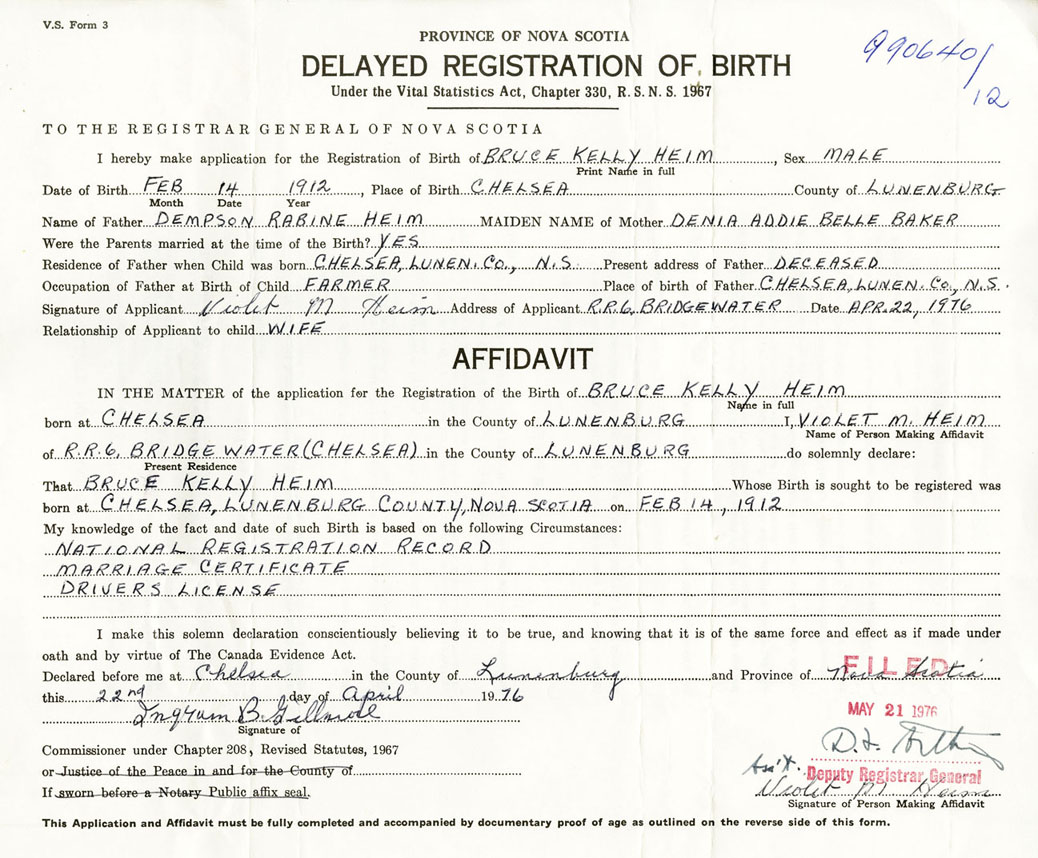 V.S. Form 3
PROVINCE OF NOVA SCOTIA
990640/
12
DELAYED REGISTRATION OF BIRTH
Under the Vital Statistics Act, Chapter 330, R.S.N.S. 1967
TO THE REGISTRAR GENERAL OF NOVA SCOTIA
I hereby make application for the Registration of Birth of BRUCE KELLY HEIM, Sex MALE
Print Name in full
Date of Birth FEB 14 1912, Place of Birth CHELSEA County of LUNENBURG
Month Date Year
Name of Father DEMPSON RABINE HEIM MAIDEN NAME of Mother DENIA ADDIE BELLE BAKER
Were the Parents married at the time of the Birth? YES
Residence of Father when Child was born CHELSEA, LUNEN. CO., N.S. Present address of Father DECEASED
Occupation of Father at Birth of Child FARMER Place of birth of Father CHELSEA, LUNEN. CO., N.S.
Signature of Applicant Violet M Heim Address of Applicant R.R.6, BRIDGEWATER Date APR. 22, 1976
Relationship of Applicant to child WIFE
AFFIDAVIT
IN THE MATTER of the application for the Registration of the Birth of BRUCE KELLY HEIM
Name in full
born at CHELSEA in the County of LUNENBURG I, VIOLET M. HEIM
Name of Person Making Affidavit
of R.R.6, BRIDGEWATER (CHELSEA) in the County of LUNENBURG do solemnly declare:
Present Residence
That BRUCE KELLY HEIM Whose Birth is sought to be registered was
born at CHELSEA, LUNENBURG COUNTY, NOVA SCOTIA on FEB 14, 1912
My knowledge of the fact and date of such Birth is based on the following Circumstances:
NATIONAL REGISTRATION RECORD
MARRIAGE CERTIFICATE
DRIVERS LICENSE
I make this solemn declaration conscientiously believing it to be true, and knowing that it is of the same force and effect as if made under
oath and by virtue of The Canada Evidence Act.
Declared before me at Chelsea in the County of Lunenburg and Province of Nova Scotia
FILED
this 22nd day of April 1976
MAY 21 1976
Ingram B. Gillmore
Signature of
Commissioner under Chapter 208, Revised Statutes, 1967
D.F.
or Justice of the Peace in and for the County of
Ass't. Deputy Registrar General
If sworn before a Notary Public affix seal.
Violet M Heim
Signature of Person Making Affidavit
This Application and Affidavit must be fully completed and accompanied by documentary proof of age as outlined on the reverse side of this form.